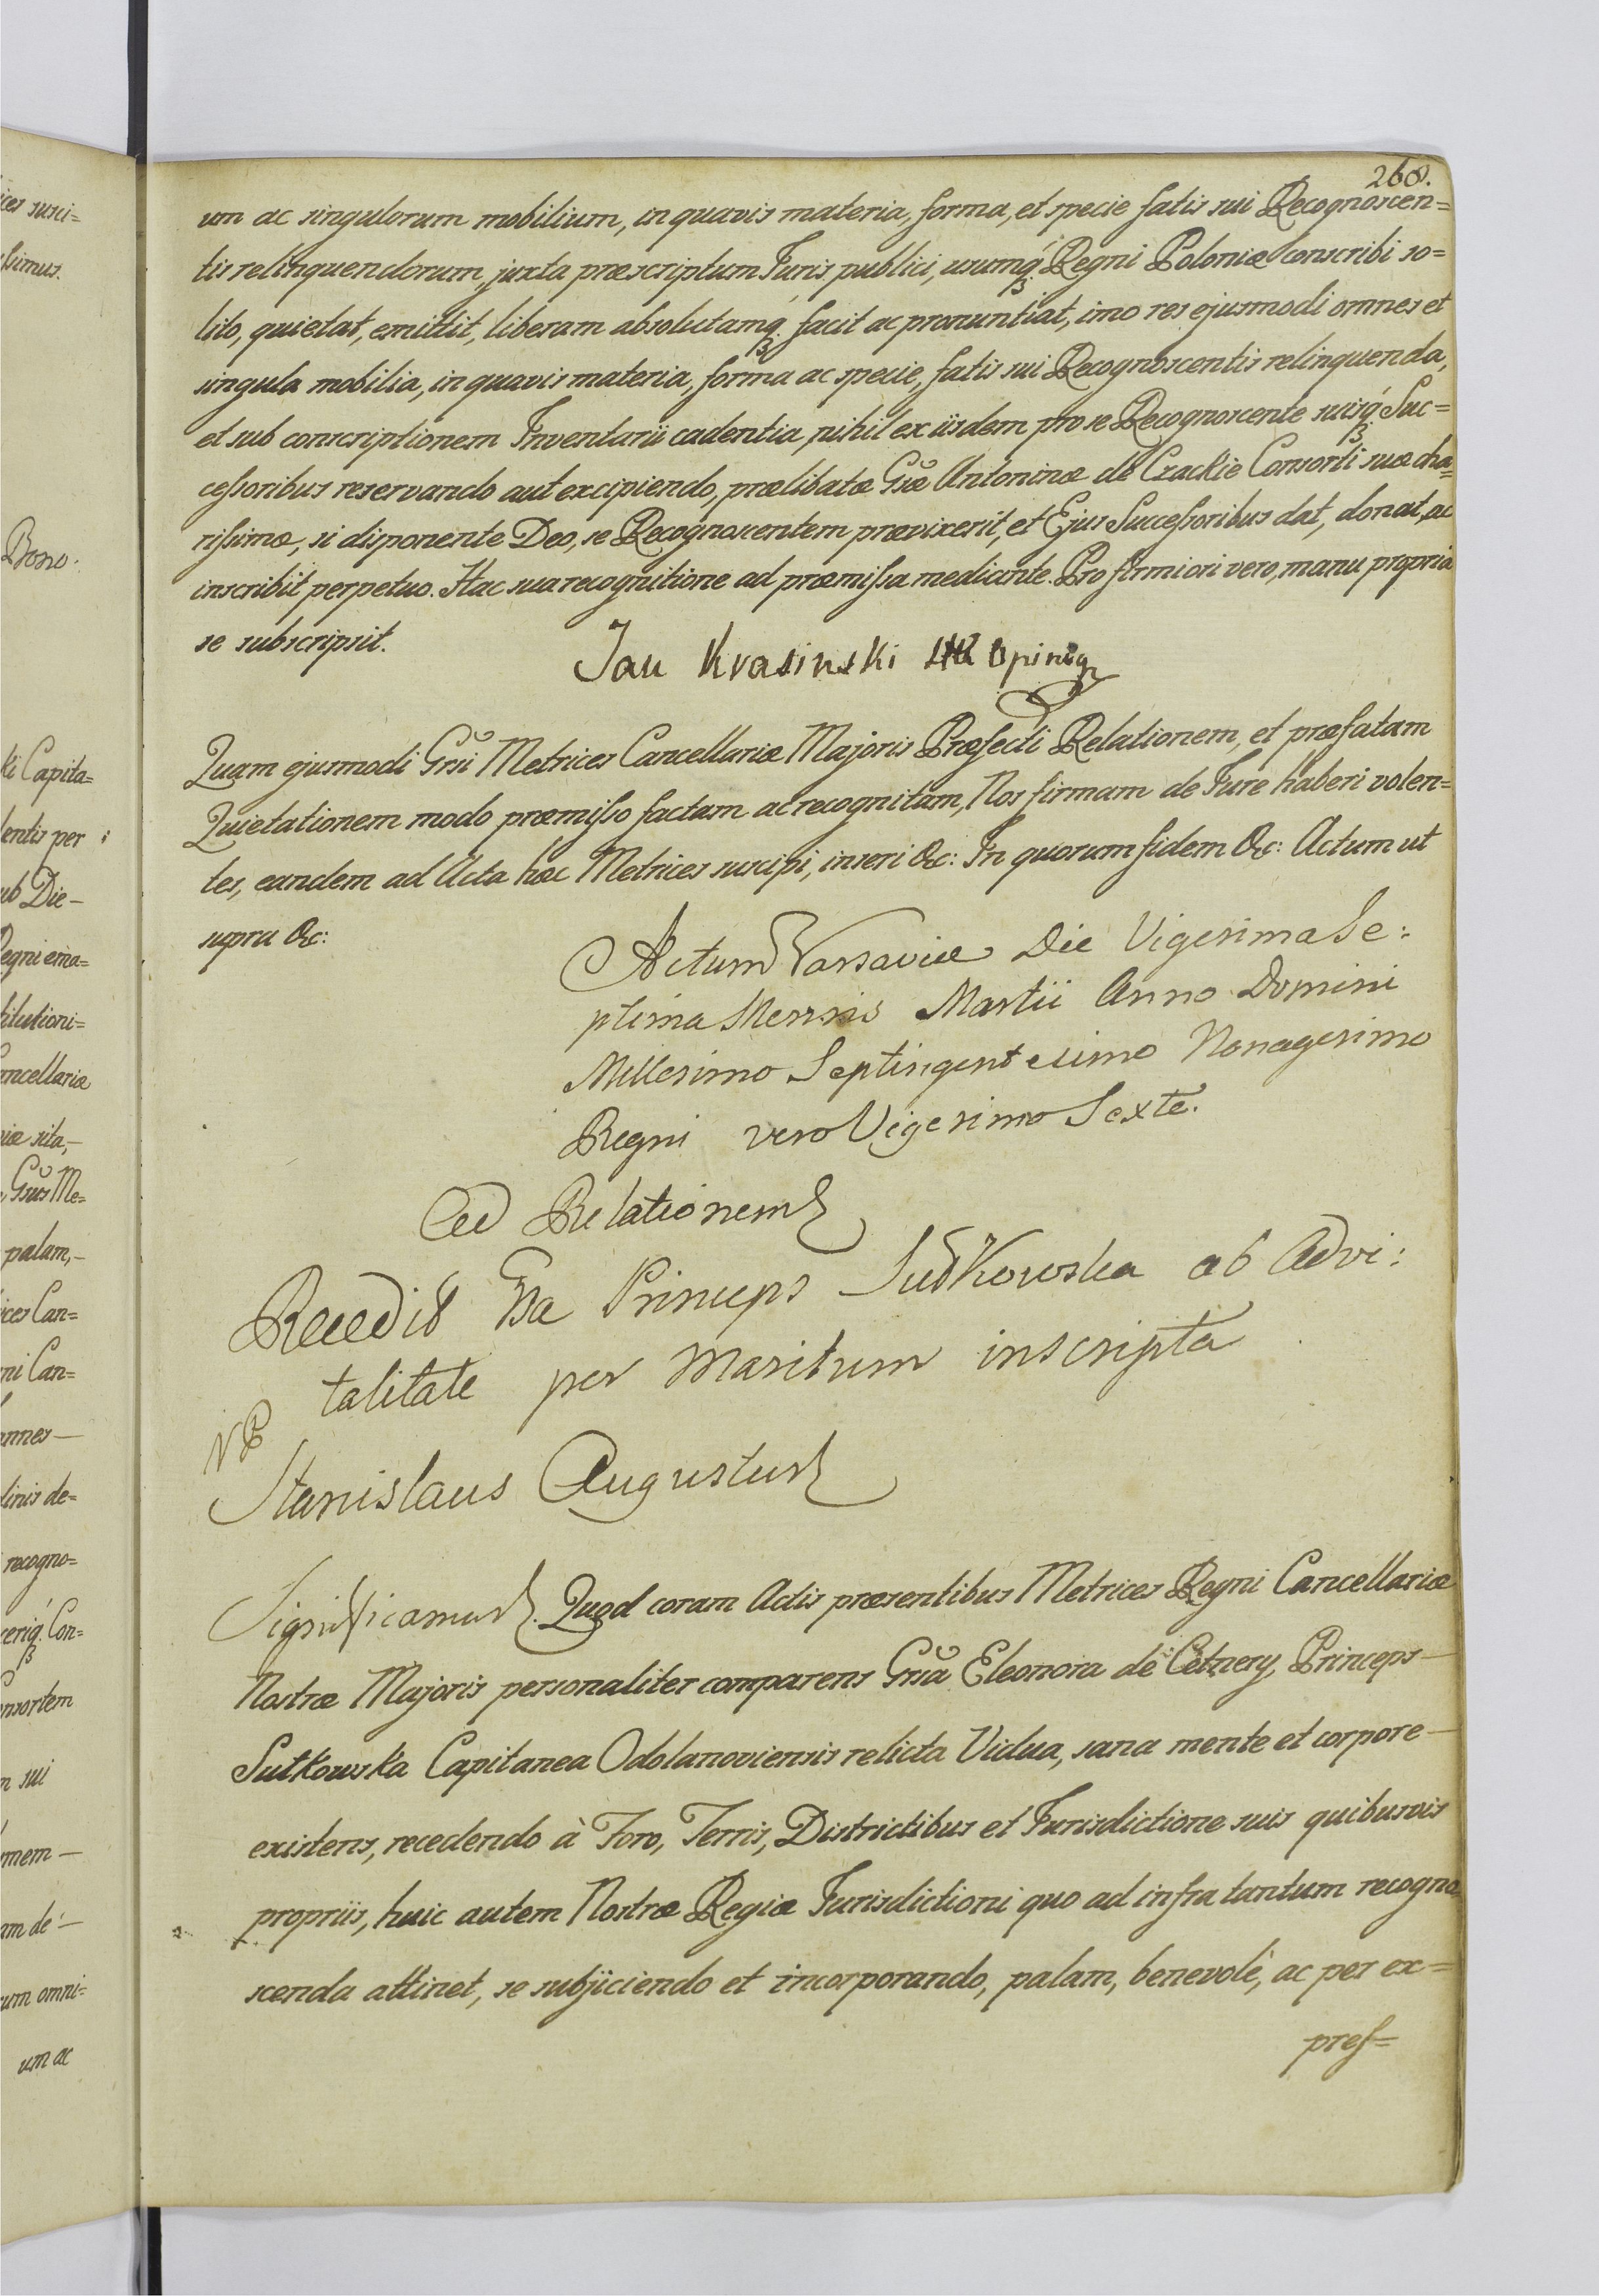 268.
um ac singulorum mobilium, in quavis materia, forma, et specie fatis sui Recognoscen=
tis relinquendorum, juxta præscriptum Juris publici, usumq₃ Regni Poloniæ conscribi so=
lito, quietat, emittit, liberam absolutamq₃ facit ac pronuntiat, imo res ejusmodi omnes et
singula mobilia, in quavis materia, forma ac specie, fatis sui Recognoscentis relinquenda,
et sub conscriptionem Inventarii cadentia, nihil ex iisdem pro se Recognoscente suisq₃ Suc=
cessoribus reservando aut excipiendo, prælibatæ Gsæ Antoninæ de Czackie Consorti suæ cha=
rissimæ, si disponente Deo, se Recognoscentem prævixerit, et Ejus Successoribus dat, donat, ac
inscribit perpetuo. Hac sua recognitione ad præmissa mediante. Pro firmiori vero, manu propria
se subscripsit.
Jan Krasinski
Quam ejusmodi Grsi Metrices Cancellariæ Majoris Præfecti Relationem, et præfatam
Quietationem modo præmisso factam ac recognitam, Nos firmam de Jure haberi volen=
tes, eandem ad Acta hæc Metrices suscipi, inseri &c: In quorum fidem &c: Actum ut
supra &c:
Actum Varsaviæ Die Vigesima Se:
ptima Mensis Martii Anno Domini
Millesimo Septingentesimo Nonagesimo
Regni vero Vigesimo Sexto.
Ad Relationem
Recedit Gsa Princeps Sudkowska ab Advi:
talitate per Maritum inscripta
Stanislaus Augustus
Significamus. Quod coram Actis præsentibus Metrices Regni Cancellariæ
Nostræ Majoris personaliter comparens Grsa Eleonora de Cetnery, Princeps –
Sutkowska Capitanea Odolanoviensis relicta Vidua, sana mente et corpore –
existens, recedendo à Foro, Terris, Districtibus et Jurisdictione suis quibusvis
propriis, huic autem Nostræ Regiæ Jurisdictioni quo ad infra tantum recogno=
scenda attinet, se subjiciendo et incorporando, palam, benevolè, ac per ex=
pres=